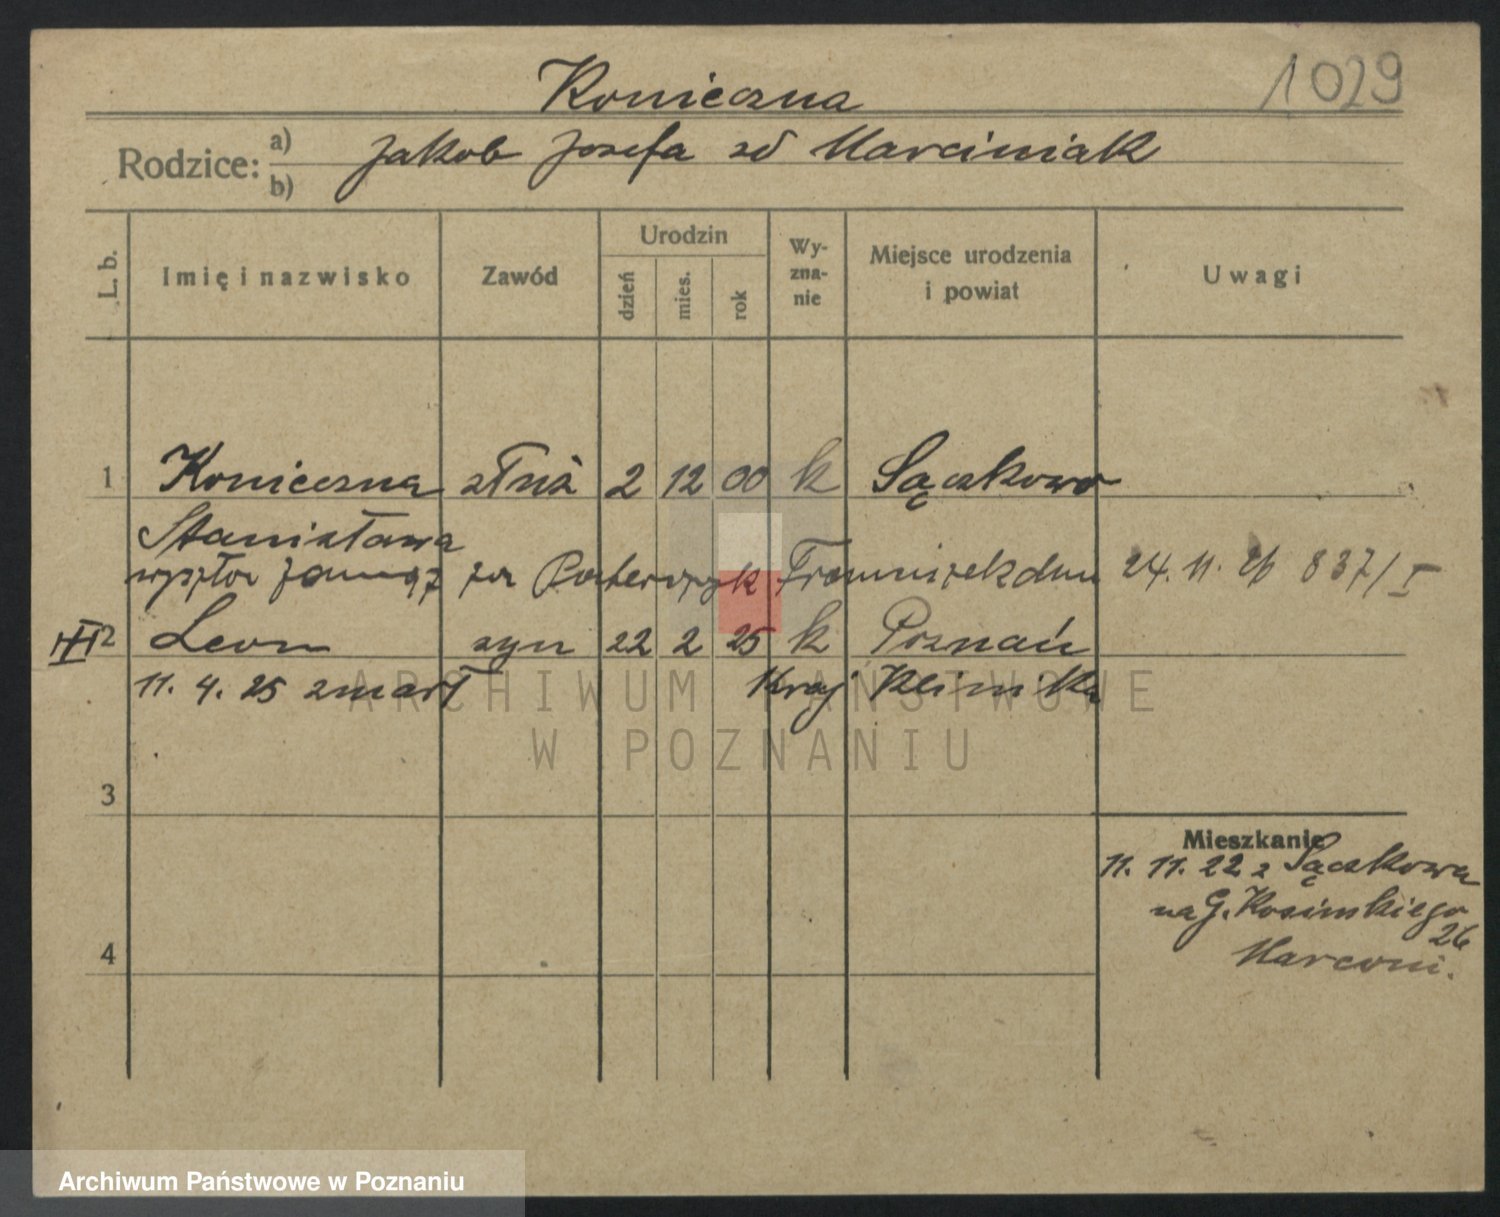 1029
Konieczna
Rodzice: a) Jakob Josefa zd Marciniak
b)
L. b. Imię i nazwisko Zawód Urodzin dzień mies. rok Wyznanie Miejsce urodzenia i powiat Uwagi
1 Konieczna służ 2 12 00 k Sączkowo
Stanisława
wyszła zamąż za Franciszek dnia 24. 11. 26 837/I
2 Leon syn 22 2 25 k Poznań
11. 4. 25 zmarł Kraj Klinika
ARCHIWUM PAŃSTWOWE
W POZNANIU
3
Mieszkanie
11. 11. 22 z Sączkowa
na G. Kosińskiego
26
4
Marconi.
Archiwum Państwowe w Poznaniu